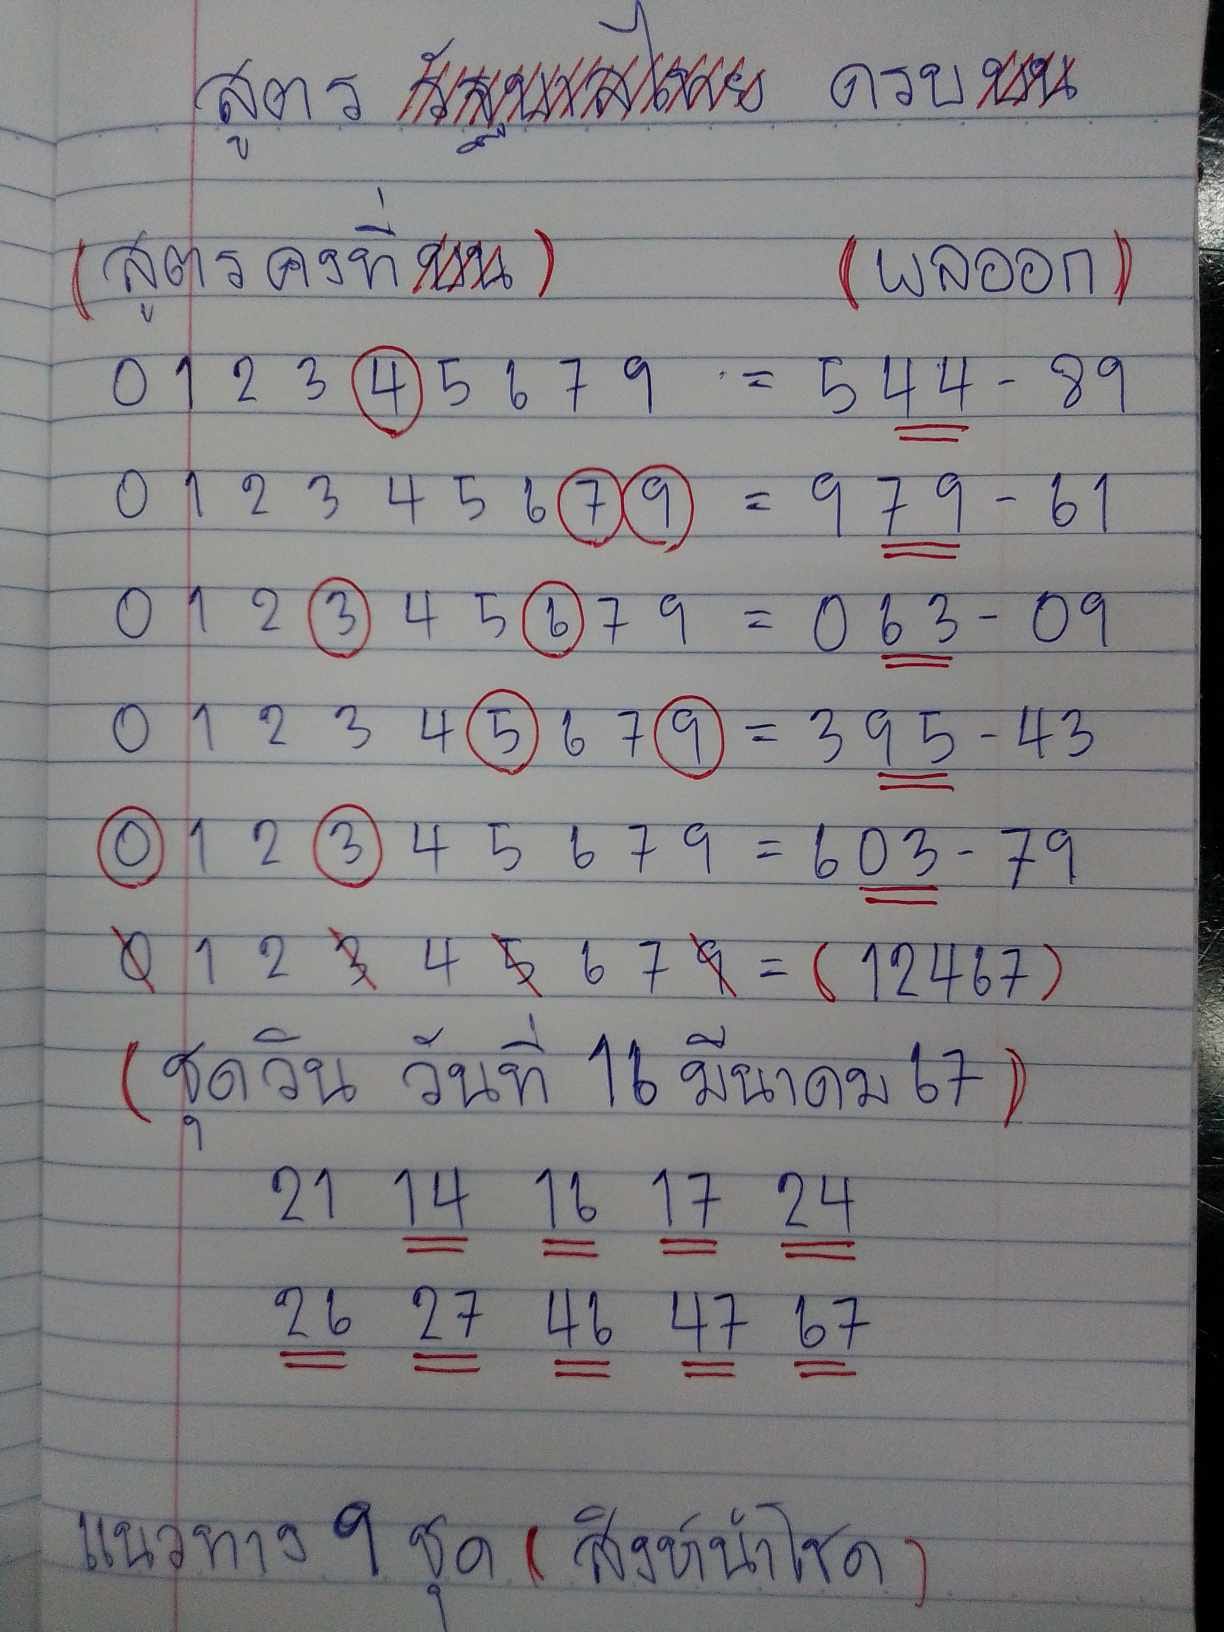 สูตร รัฐบาลไทย ครบ บน
(สูตรคงที่ บน) (ผลออก)
0 1 2 3 4 5 6 7 9 = 544 - 89
0 1 2 3 4 5 6 7 9 = 979 - 61
0 1 2 3 4 5 6 7 9 = 063 - 09
0 1 2 3 4 5 6 7 9 = 395 - 43
0 1 2 3 4 5 6 7 9 = 603 - 79
0 1 2 3 4 5 6 7 9 = (12467)
(ชุดวิน วันที่ 16 มีนาคม 67)
21 14 16 17 24
26 27 46 47 67
แนวทาง 9 ชุด (สิงห์นำโชค)